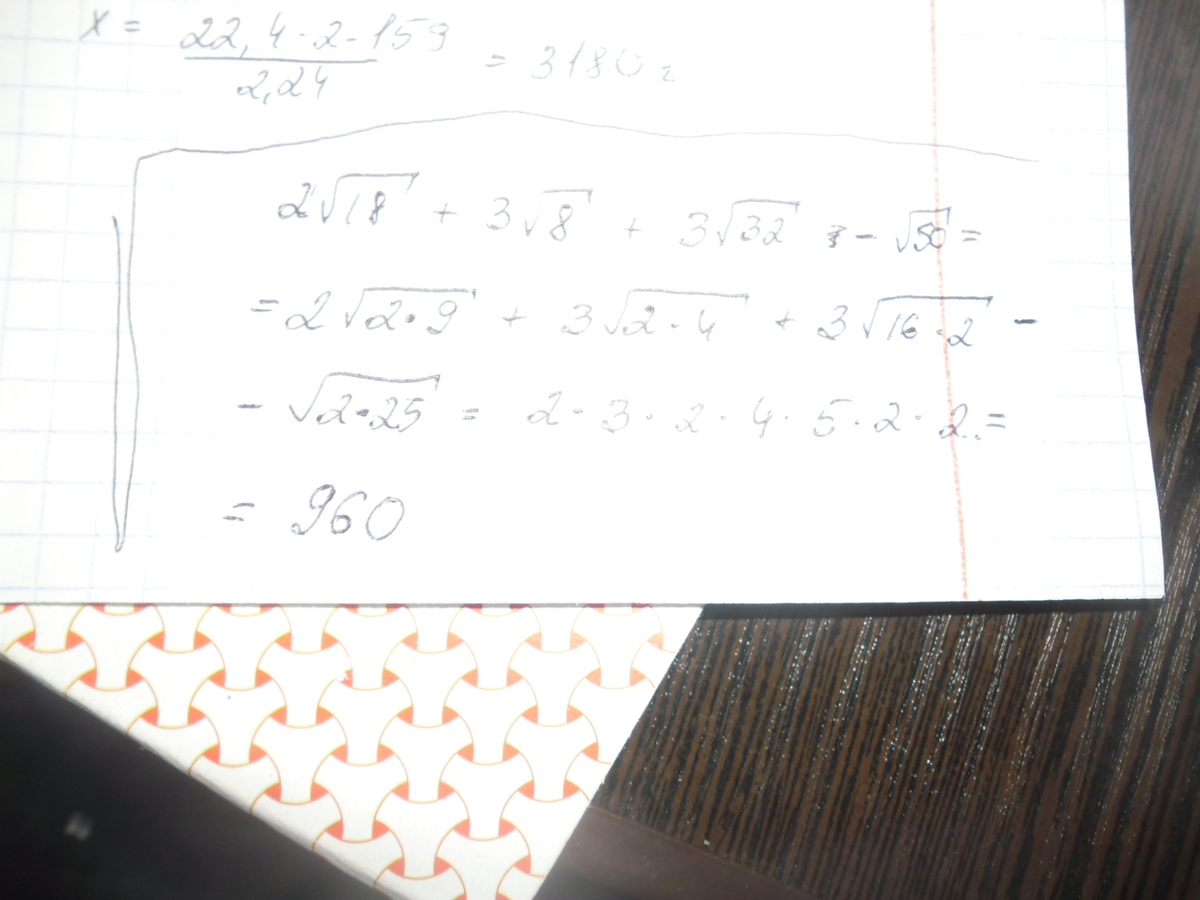 x = 22,4 · 2 · 159 / 2,24 = 3180 г
2√18 + 3√8 + 3√32 - √50 =
= 2√2·9 + 3√2·4 + 3√16·2 -
- √2·25 = 2 · 3 · 2 · 4 · 5 · 2 · 2. =
= 960